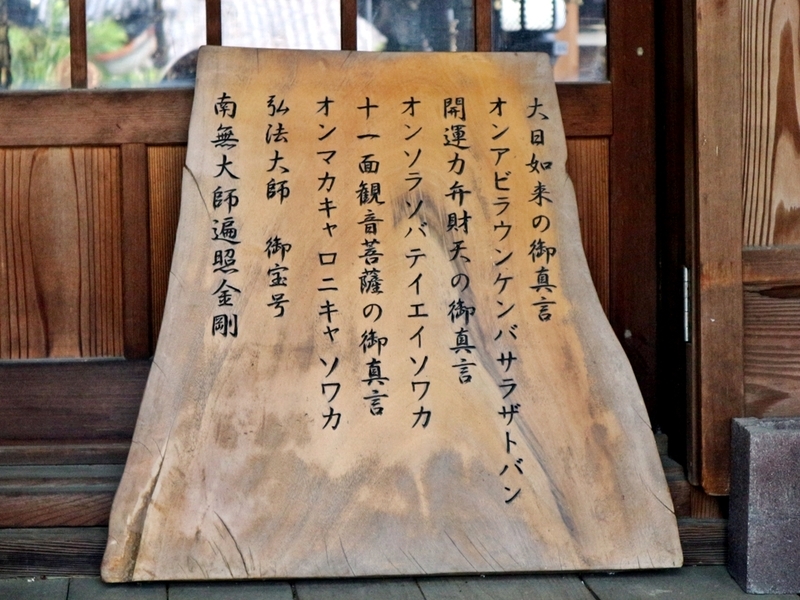 大日如来の御真言
オンアビラウンケンバサラザトバン
開運力弁財天の御真言
オンソラソバテイエイソワカ
十一面観音菩薩の御真言
オンマカキャロニキャソワカ
弘法大師　御宝号
南無大師遍照金剛